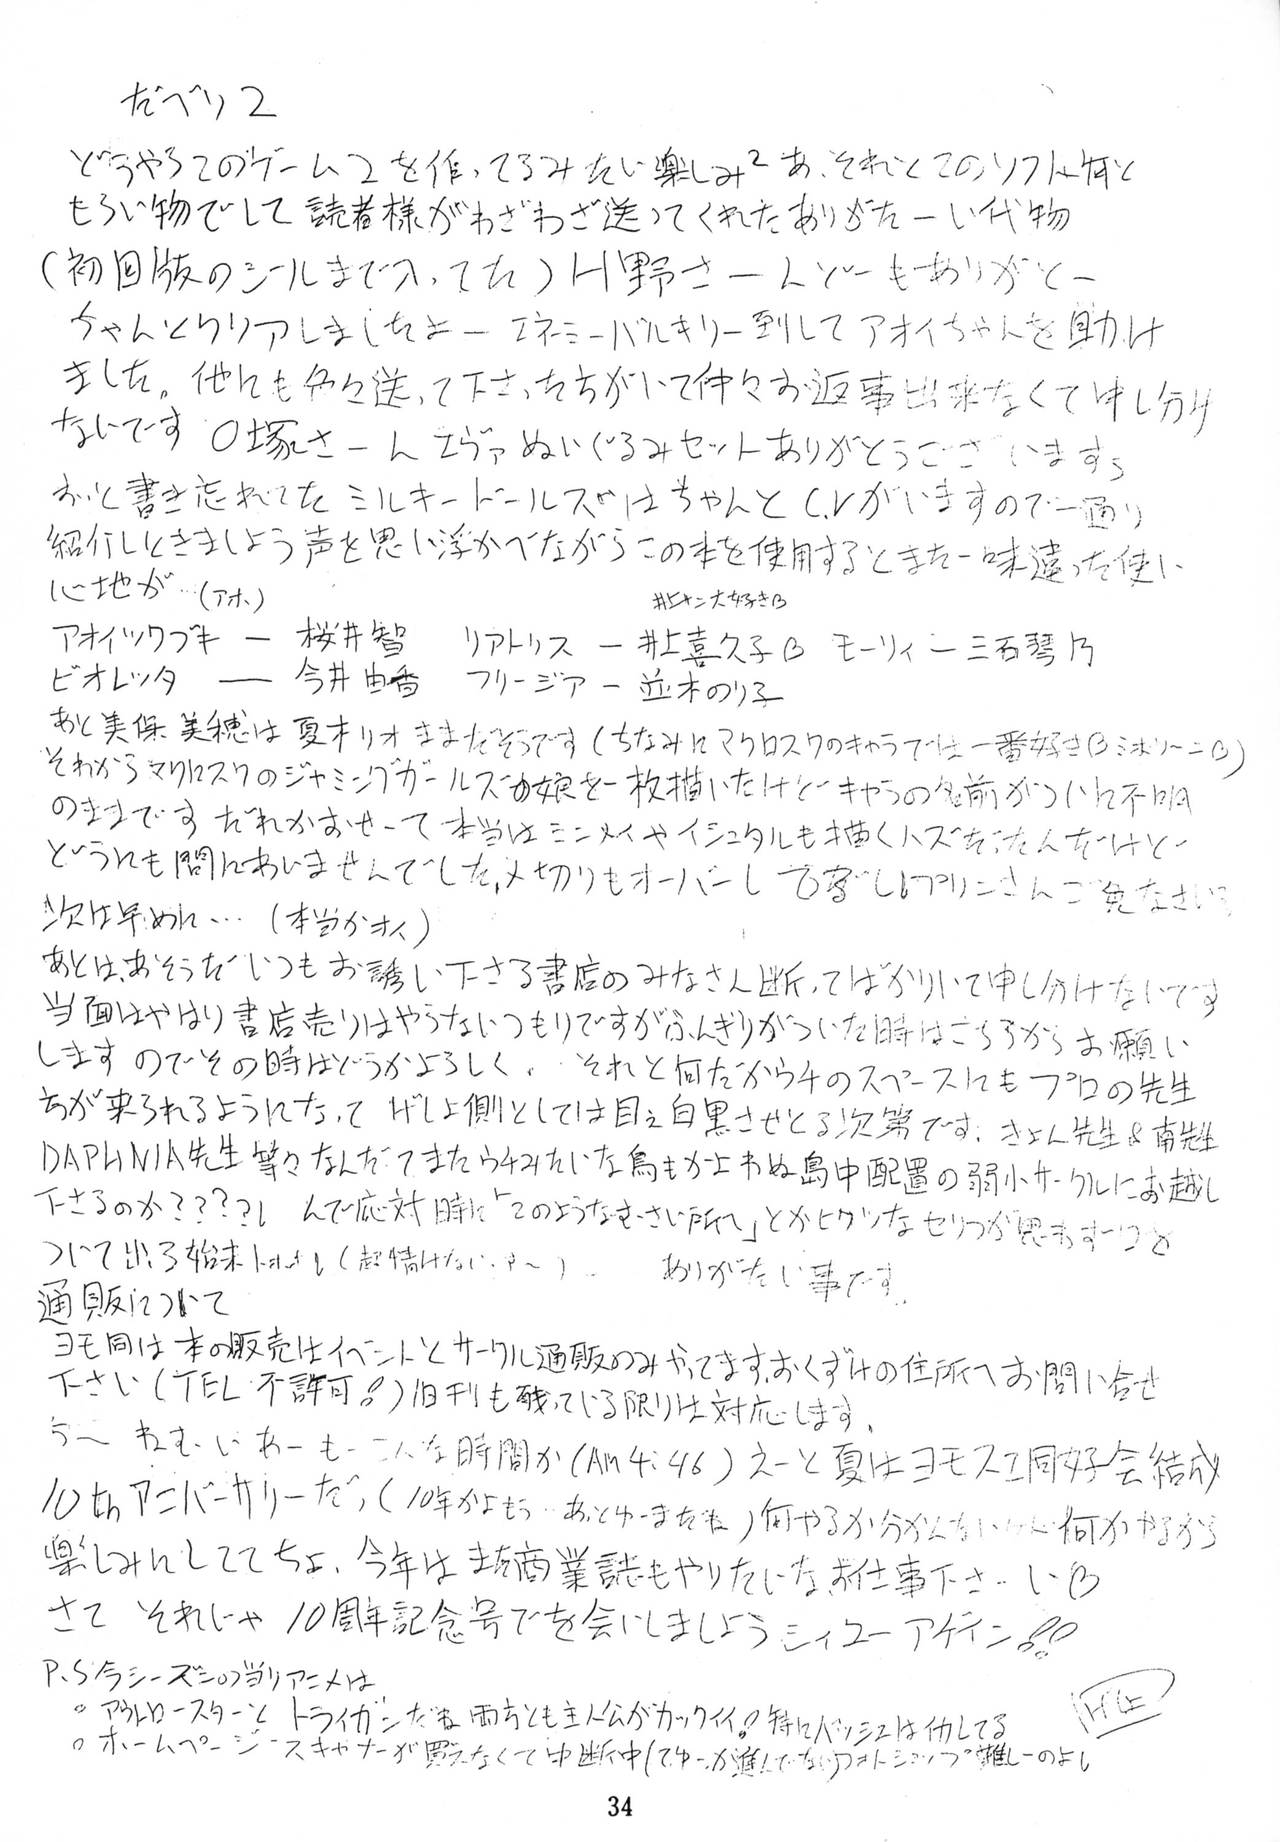 だべり2
どうやらこのゲーム2を作ってるみたい楽しみ² あ、それとこのソフト何と
もらい物でして読者様がわざわざ送ってくれたありがたーい代物
(初回版のシールまで入ってた) H野さーんどーもありがとー
ちゃんとクリアしましたよー エネミーバルキリー倒してアオイちゃんを助け
ました。他にも色々送って下さった方がいて仲々お返事出来なくて申し分け
ないです O塚さーん エヴァぬいぐるみセットありがとうございます
おっと書き忘れてたミルキードールズはちゃんとC.Vがいますので一通り
紹介しときましょう声を思い浮かべながらこの本を使用するとまた一味違った使い
心地が…(アホ)
井上サン大好き♡
アオイツワブキ ー 桜井智 リアトリス ー 井上喜久子♡ モーリィー三石琴乃
ビオレッタ ー 今井由香 フリージア ー 並木のり子
あと美保美穂は夏木リオままだそうです(ちなみにマクロス7のキャラでは一番好き♡ミホリーニ♡)
それからマクロス7のジャミングガールズの娘を一枚描いたけどキャラの名前がついに不明
のままです だれかおせーて 本当はミンメイやイシュタルも描くハズだったんだけど
どうにも間にあいませんでした、〆切りもオーバーし プリンさんご免なさい
次は早めに…(本当かオイ)
あとは、あそうだいつもお誘い下さる書店のみなさん断ってばかりいて申し分けないです
当面はやはり書店売りはやらないつもりですがふんぎりがついた時はこちらからお願い
しますのでその時はどうかよろしく、それと何だかウチのスペースにもプロの先生
方が来られるようになって げしょ側としては目ぇ白黒させとる次第です、きょん先生&南先生
DAPHNIA先生等々なんだってまたウチみたいな鳥もかよわぬ島中配置の弱小サークルにお越し
下さるのか????し んで応対時に「このようなむさい所へ」とかヒクツなセリフが思わずーつと
ついて出る始末 (超情けないっやー) ありがたい事です。
通販について
ヨモ同は本の販売はイベントとサークル通販のみやってます、おくずけの住所へお問い合せ
下さい(TEL不許可!)旧刊も残っている限りは対応します。
うー ねむいわーもーこんな時間か(Am4:46)えーと夏はヨモスエ同好会結成
10thアニバーサリーだっ(10年かよもう…あっとゆーまだね)何やるか分かんないけど何かやるから
楽しみにしててちょ、今年はまた商業誌もやりたいなお仕事下さーい♡
さて それじゃ10周年記念号でを会いしましょうシィユーアゲイン!!
P.S今シーズンの当りアニメは
○ アウトロースターと トライガンだね両方とも主人公がカックイイ!特にバッシュはイカしてる
○ ホームページースキャナーが買えなくて中断中(てゆーか進んでない)フォトショップ難しーのよし
34